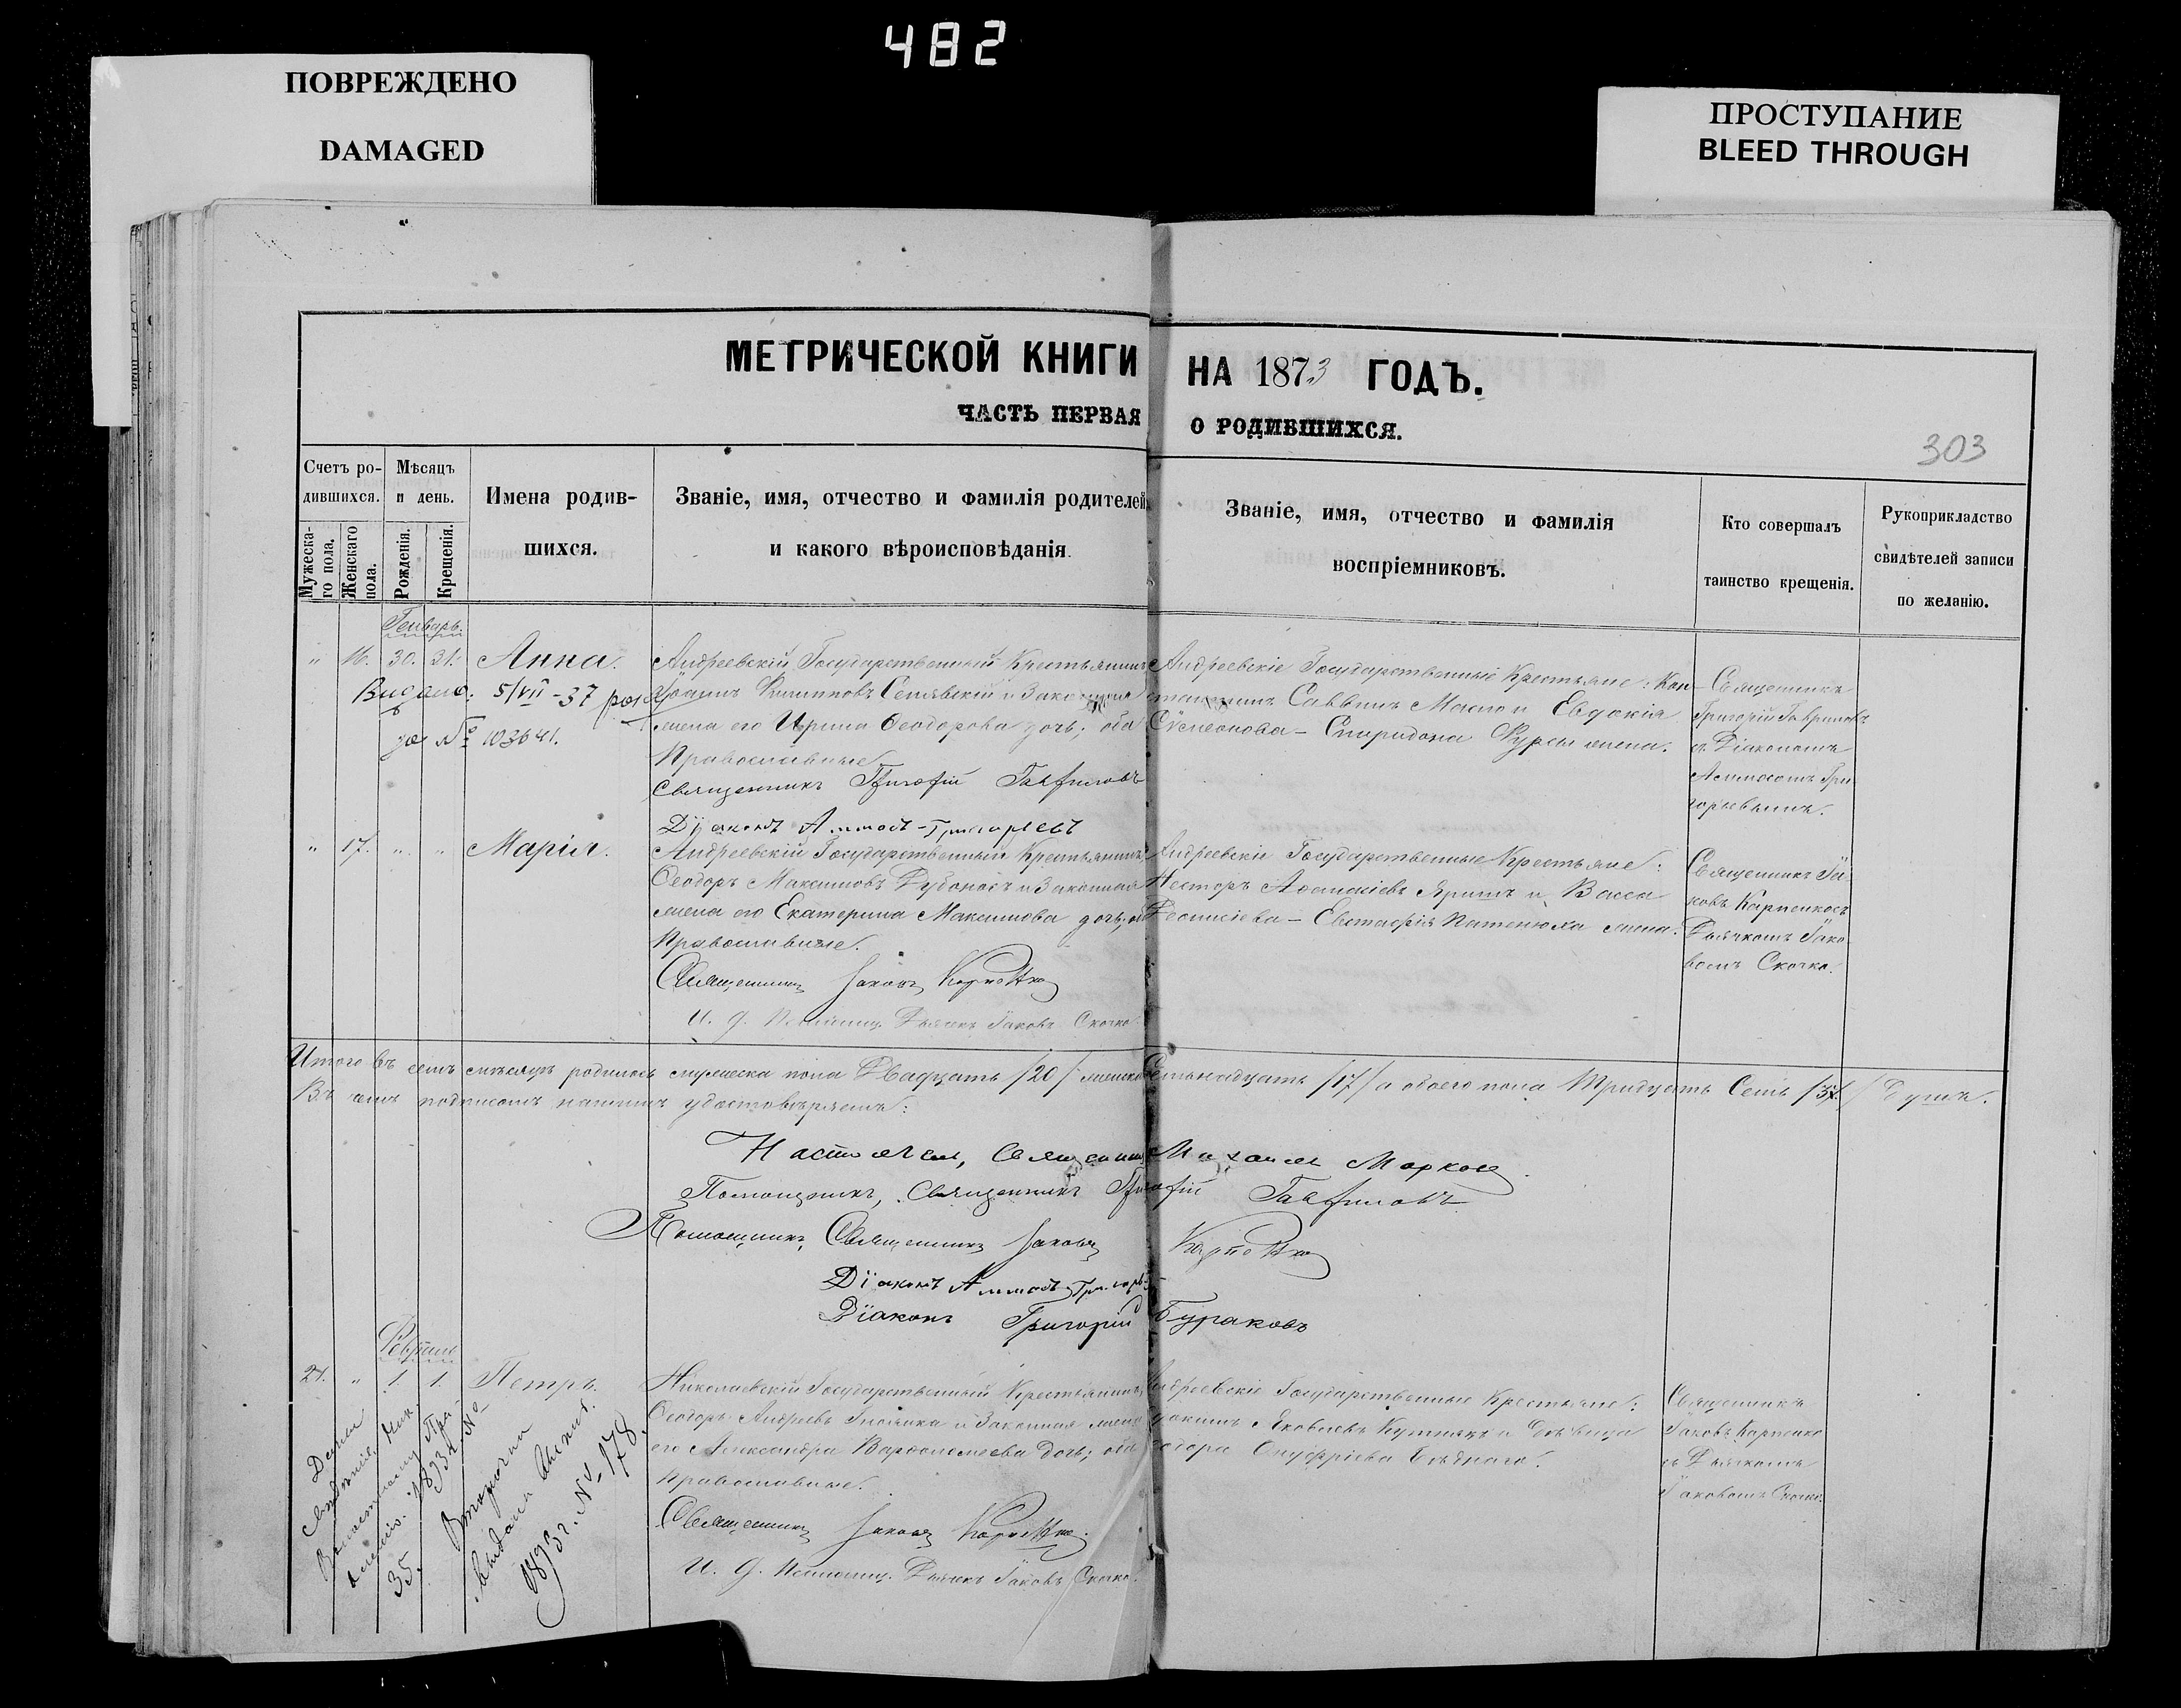 482
ПОВРЕЖДЕНО
DAMAGED
ПРОСТУПАНИЕ
BLEED THROUGH
МЕТРИЧЕСКОЙ КНИГИ НА 1873 ГОДЪ.
ЧАСТЬ ПЕРВАЯ О РОДИВШИХСЯ.
303
Счетъ ро-
дившихся.
Мужеска-
го пола.
Женскаго
пола.
Мѣсяцъ
и день.
Рожденія.
Крещенія.
Имена родив-
шихся.
Званіе, имя, отчество и фамилія родителей
и какого вѣроисповѣданія.
Званіе, имя, отчество и фамилія
воспріемниковъ.
Кто совершалъ
таинство крещенія.
Рукоприкладство
свидѣтелей записи
по желанію.
Генварь.
" 16. 30. 31. Анна.
Видано: 5/VII-37 рок
за № 103641.
Андреевскій Государственный Крестьянинъ
Іоаннъ Филипповъ и Законная
жена его Ирина Ѳеодорова дочь; оба
Православные
Священникъ Григорій Гавриловъ
Діаконъ Аммосъ Григорьевъ
Андреевскіе Государственные Крестьяне: Кон-
стантинъ Саввинъ Масло и Евдокія
Симеонова - Спиридона жена.
Священникъ
Григорій Гавриловъ
съ Діакономъ
Аммосомъ Гри
горьевымъ.
" 17. " " Марія.
Андреевскій Государственный Крестьянинъ
Ѳеодоръ Максимовъ и Законная
жена его Екатерина Максимова дочь; оба
Православные.
Священникъ Іаковъ Карпенко
И. д. Псаломщ. Дьячекъ Іаковъ Скочко.
Андреевскіе Государственные Крестьяне:
Несторъ и Васса
Діонисіева - Евстафія жена.
Священникъ Іа
ковъ Карпенко съ
Дьячкомъ Іако
вомъ Скочко.
Итого въ семъ мѣсяцѣ родилось мужеска пола Двадцать /20/ женска Семьнадцать /17/ а обоего пола Тридцать Семь /37/ Душъ.
Въ чемъ подписомъ нашимъ удостовѣряемъ:
Настоятель, Священникъ Михаилъ Марков
Помощникъ, Священникъ Григорій Гавриловъ
Помощникъ, Священникъ Іаковъ Карпенко
Діаконъ Аммосъ Григорьевъ
Діаконъ Григорій Бураковъ
Февраль
21. " 1. 1. Петръ.
1893 г. № 178.
35.
Николаевскій Государственный Крестьянинъ
Ѳеодоръ Андреевъ и Законная жена
его Александра Варѳоломеева дочь; оба
Православные.
Священникъ Іаковъ Карпенко.
И. д. Псаломщ. Дьячекъ Іаковъ Скочко.
Андреевскіе Государственные Крестьяне:
Яковлевъ и Дѣвица
Онуфріева
Священникъ
Іаковъ Карпенко
съ Дьячкомъ
Іаковомъ Скочко.